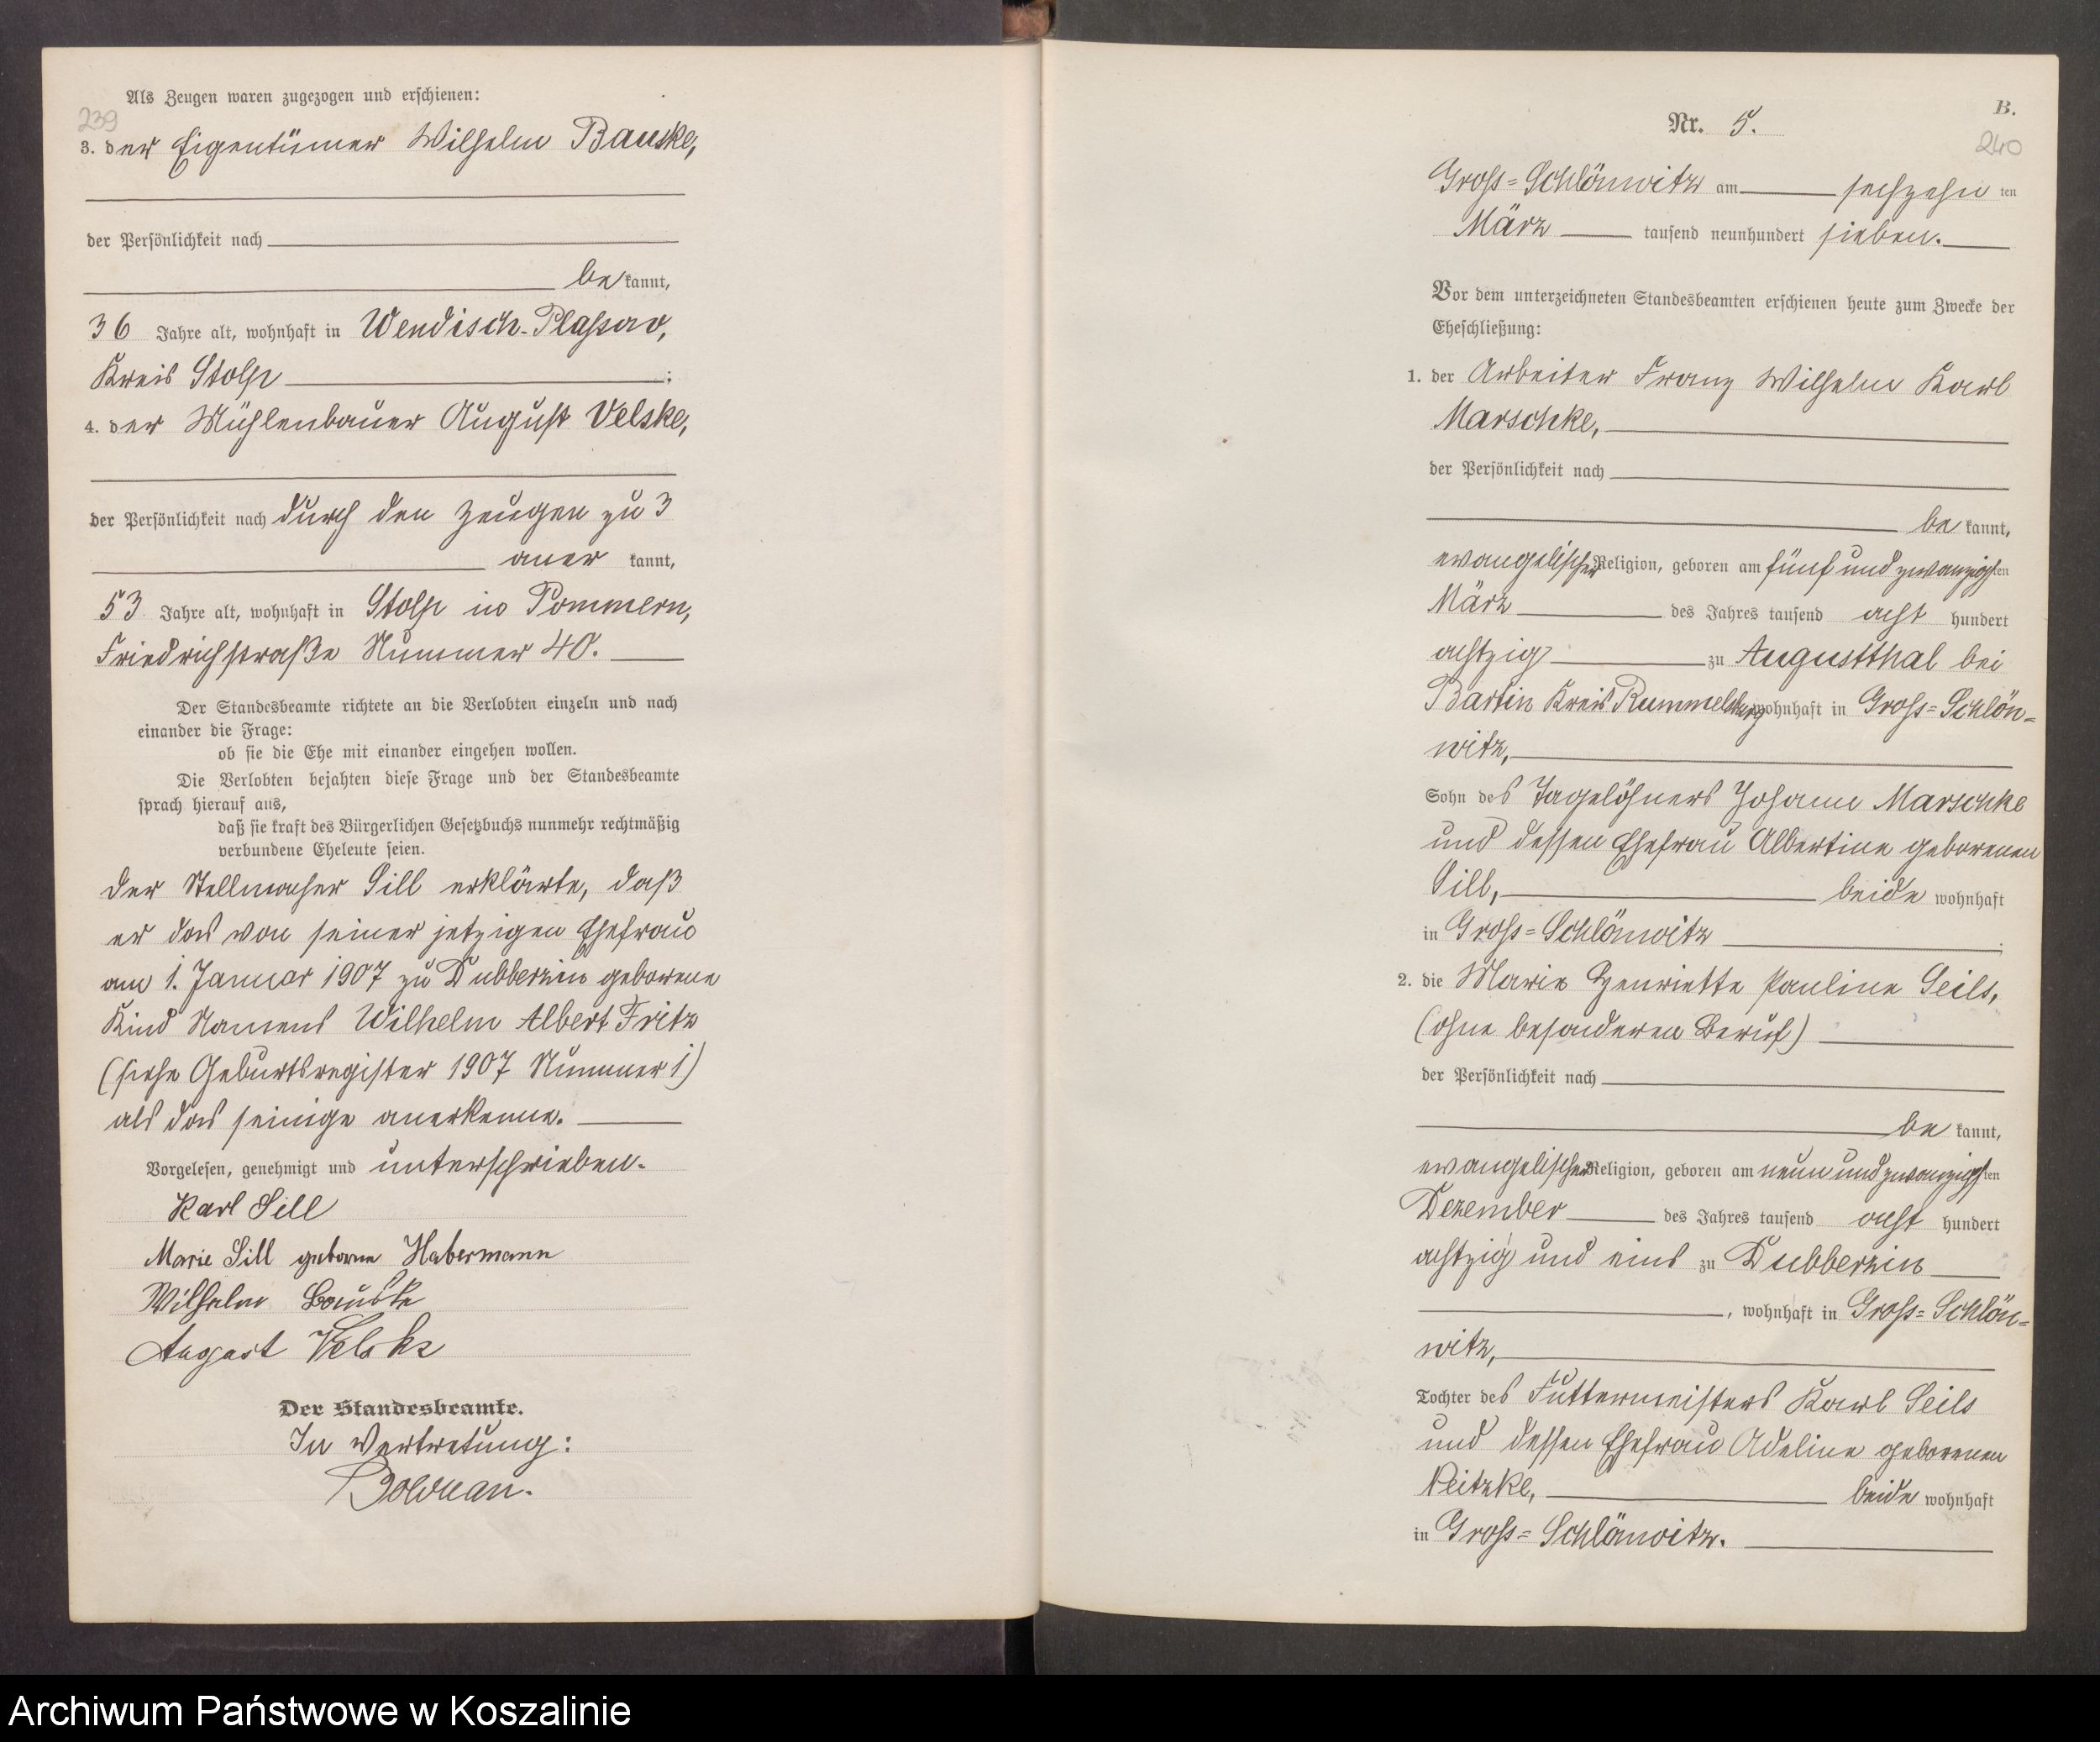 Als Zeugen waren zugezogen und erschienen:
239
3. der Eigentümer Wilhelm Bauske,
der Persönlichkeit nach
be kannt,
36 Jahre alt, wohnhaft in Wendisch-Plassow,
Kreis Stolp ;
4. der Mühlenbauer August Velske,
der Persönlichkeit nach durch den Zeugen zu 3
aner kannt,
53 Jahre alt, wohnhaft in Stolp in Pommern,
Friedrichstraße Nummer 40.
Der Standesbeamte richtete an die Verlobten einzeln und nach
einander die Frage:
ob sie die Ehe mit einander eingehen wollen.
Die Verlobten bejahten diese Frage und der Standesbeamte
sprach hierauf aus,
daß sie kraft des Bürgerlichen Gesetzbuchs nunmehr rechtmäßig
verbundene Eheleute seien.
Der Stellmacher Sill erklärte, daß
er das von seiner jetzigen Ehefrau
am 1. Januar 1907 zu Dubberzin geborene
Kind Namens Wilhelm Albert Fritz
(siehe Geburtsregister 1907 Nummer 1)
als das seinige anerkenne.
Vorgelesen, genehmigt und unterschrieben.
Karl Sill
Marie Sill geborne Habermann
Wilhelm Bauske
August Velske
Der Standesbeamte.
In Vertretung:
B.
Nr. 5.
240
Gross=Schlönwitz am sechzehn ten
März tausend neunhundert sieben.
Vor dem unterzeichneten Standesbeamten erschienen heute zum Zwecke der
Eheschließung:
1. der Arbeiter Franz Wilhelm Karl
Marschke,
der Persönlichkeit nach
be kannt,
evangelischer Religion, geboren am fünf und zwanzigsten
März des Jahres tausend acht hundert
achtzig zu Augustthal bei
Bartin Kreis Rummelsburg wohnhaft in Gross=Schlön=
witz,
Sohn des Tagelöhners Johann Marschke
und dessen Ehefrau Albertine geborenen
Sill, beide wohnhaft
in Gross=Schlönwitz
2. die Marie Henriette Pauline Seils,
(ohne besonderen Beruf)
der Persönlichkeit nach
be kannt,
evangelischer Religion, geboren am neun und zwanzigsten
Dezember des Jahres tausend acht hundert
achtzig und eins zu Dubberzin
, wohnhaft in Gross=Schlön=
witz,
Tochter des Futtermeisters Karl Seils
und dessen Ehefrau Adeline geborenen
Peitzke, beide wohnhaft
in Gross=Schlönwitz.
Archiwum Państwowe w Koszalinie